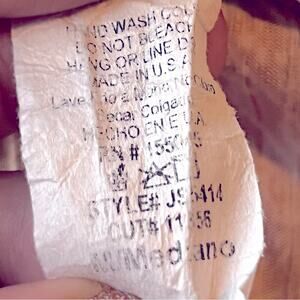 HAND WASH COL
DO NOT BLEACH
HANG OR LINE D
MADE IN U.S.A
Lave No
Secar Colgado
HECHO EN E.U.A.
RN #
STYLE# JS 414
CUT# 11
M/Mediano